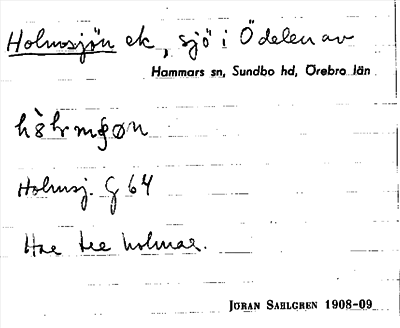 Holmsjön ek, sjö i Ö delen av
Hammars sn, Sundbo hd, Örebro län
Holmsj. G 64
Har tre holmar.
JÖRAN SAHLGREN 1908-09